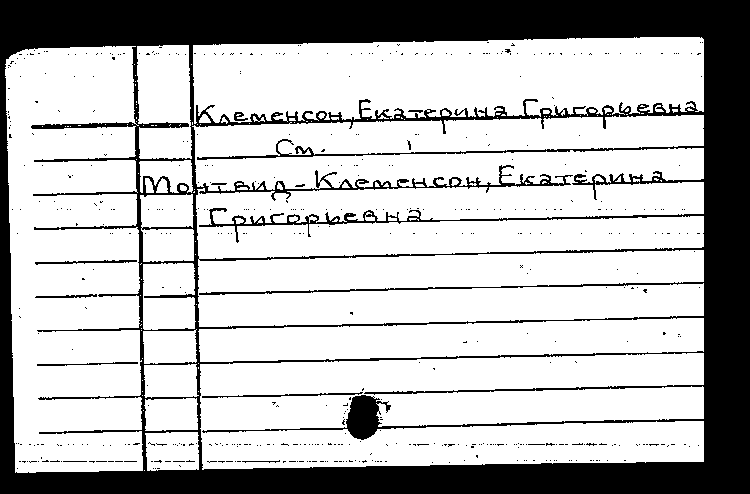 Клеменсон, Екатерина Григорьевна
См.
Монтвид-Клеменсон, Екатерина
Григорьевна.